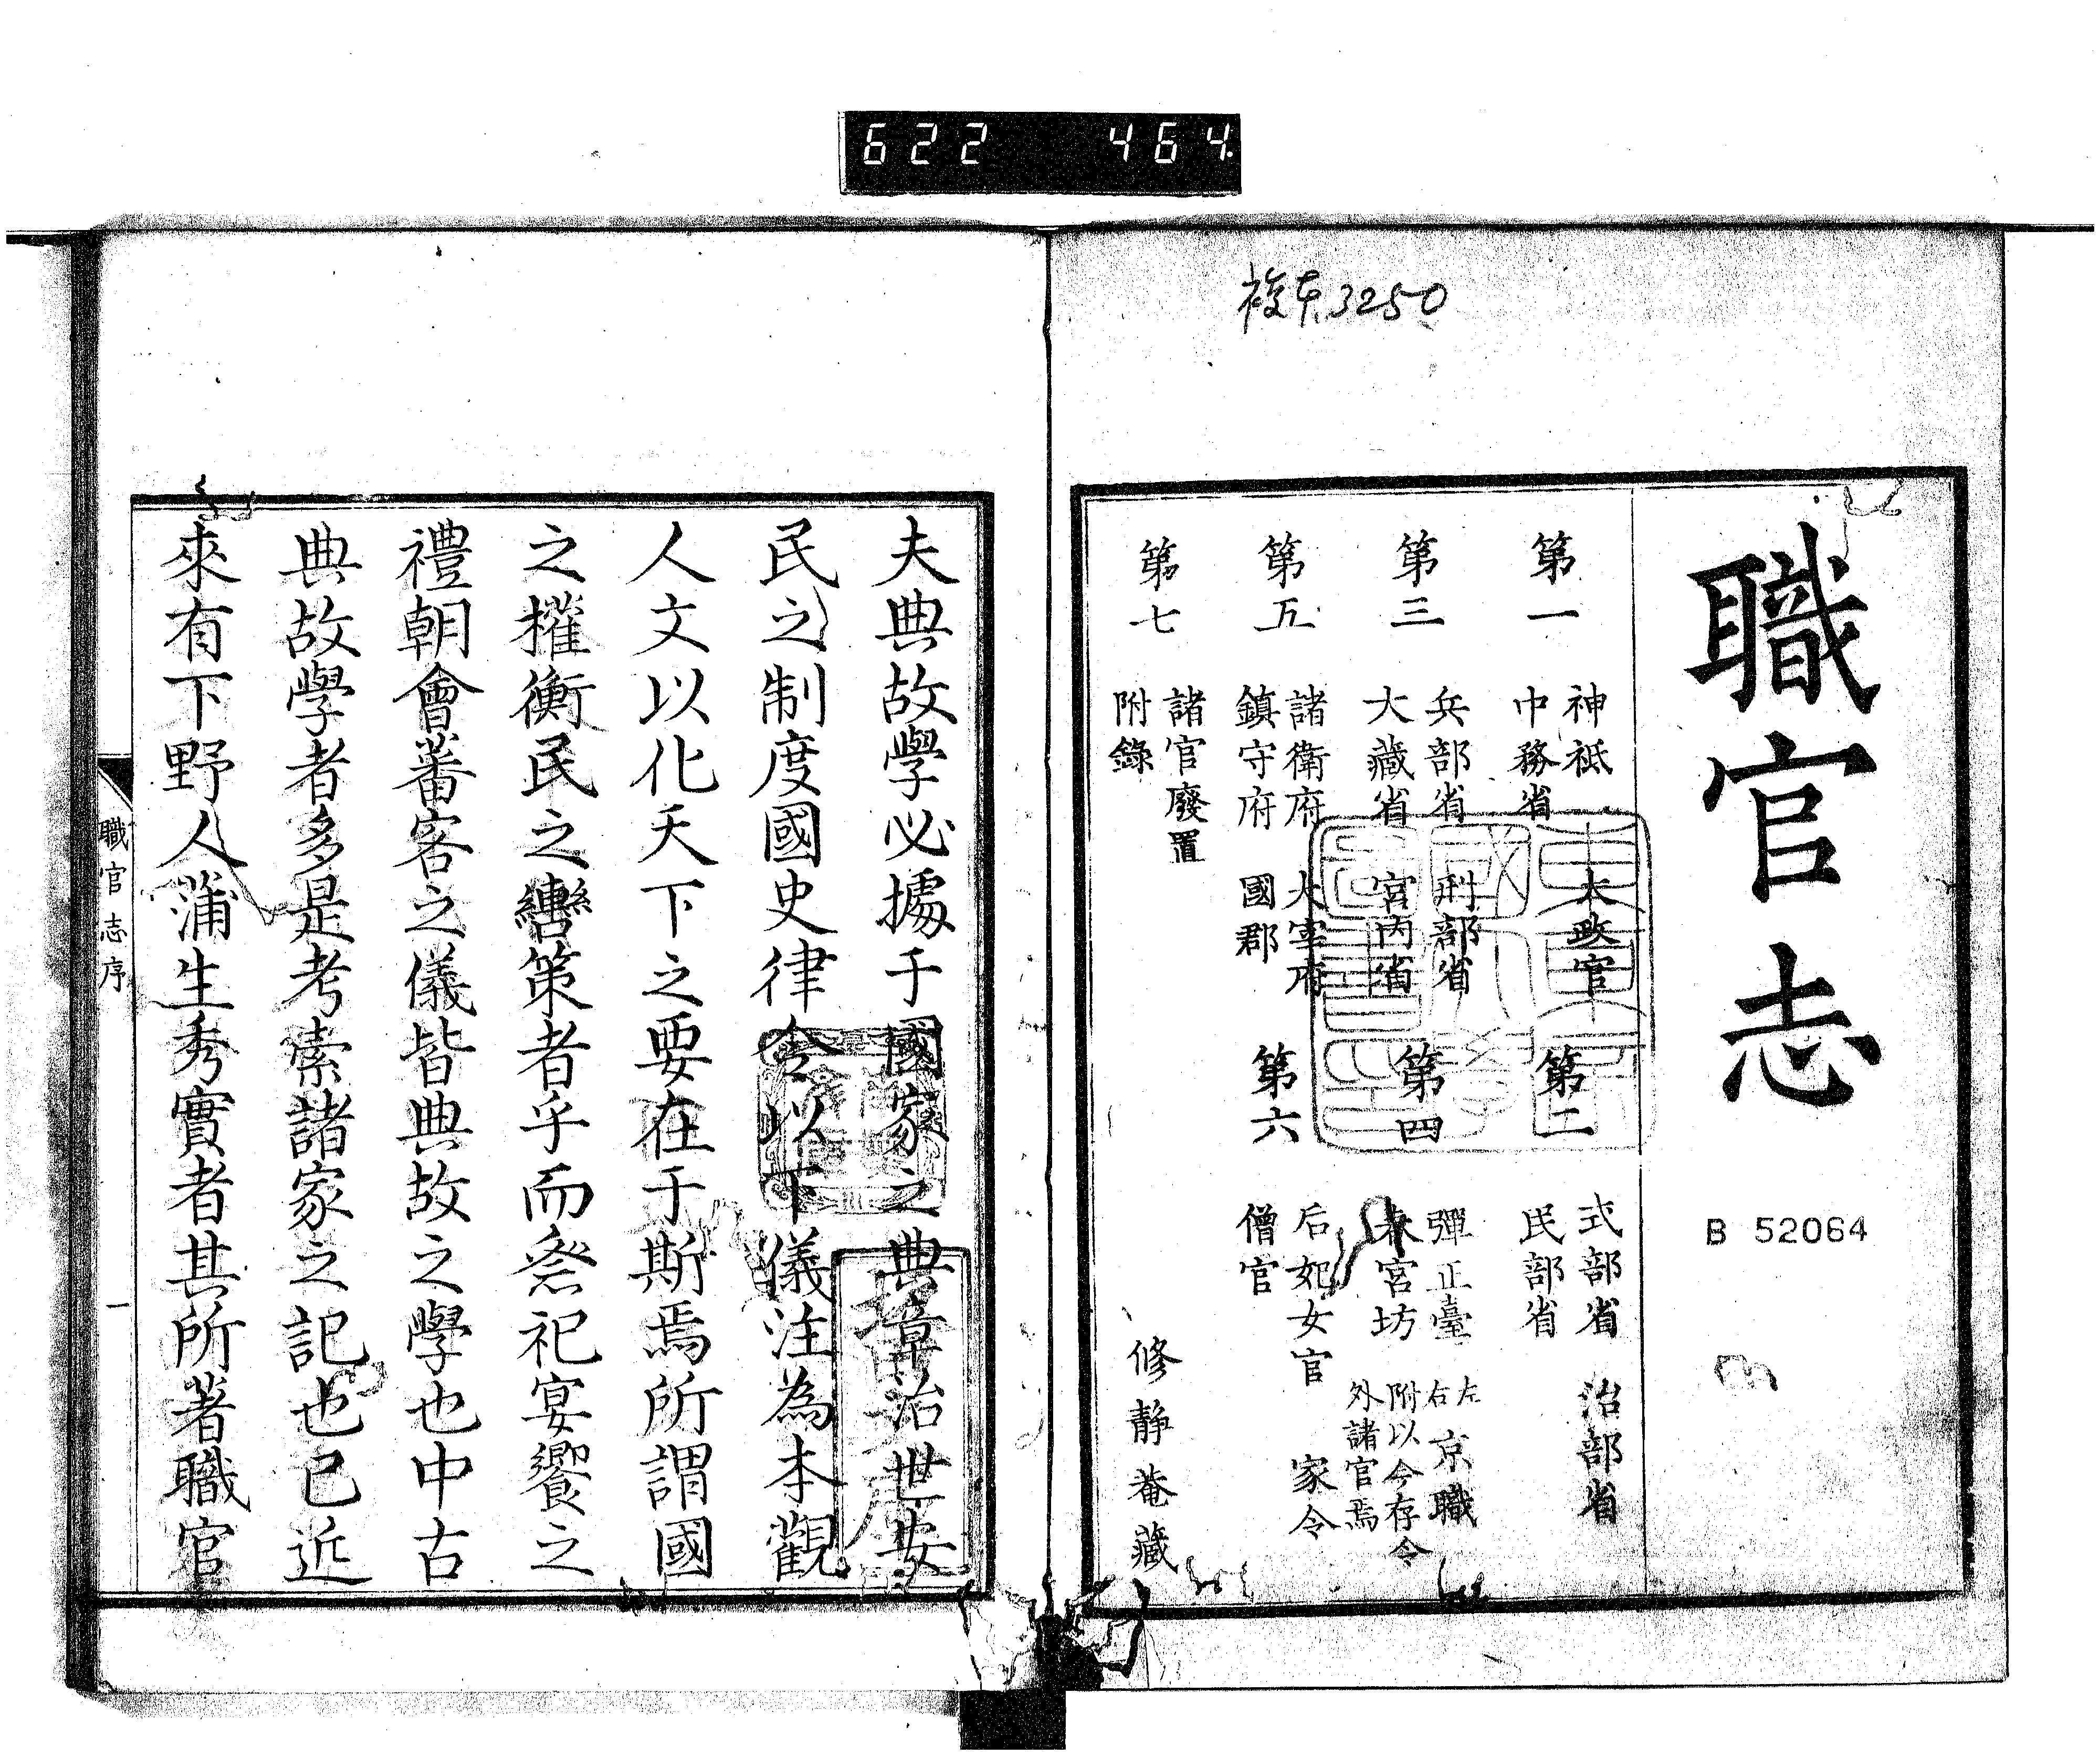 622 464
複本3250
職官志
B 52064
第一 神祇 太政官 中務省
第二 式部省 治部省 民部省
第三 兵部省 刑部省 大藏省 宮內省
第四 彈正臺 左右京職 春宮坊 附以今存令外諸官焉
第五 諸衛府 大宰府 鎮守府 國郡
第六 后妃女官 家令 僧官
第七 諸官廢置 附錄
修靜菴藏
夫典故學必據于國家之典章治世安
民之制度國史律令以下儀注為本觀
人文以化天下之要在于斯焉所謂國
之權衡民之轡策者乎而祭祀宴饗之
禮朝會蕃客之儀皆典故之學也中古
典故學者多是考索諸家之記也已近
來有下野人蒲生秀實者其所著職官
職官志序
一